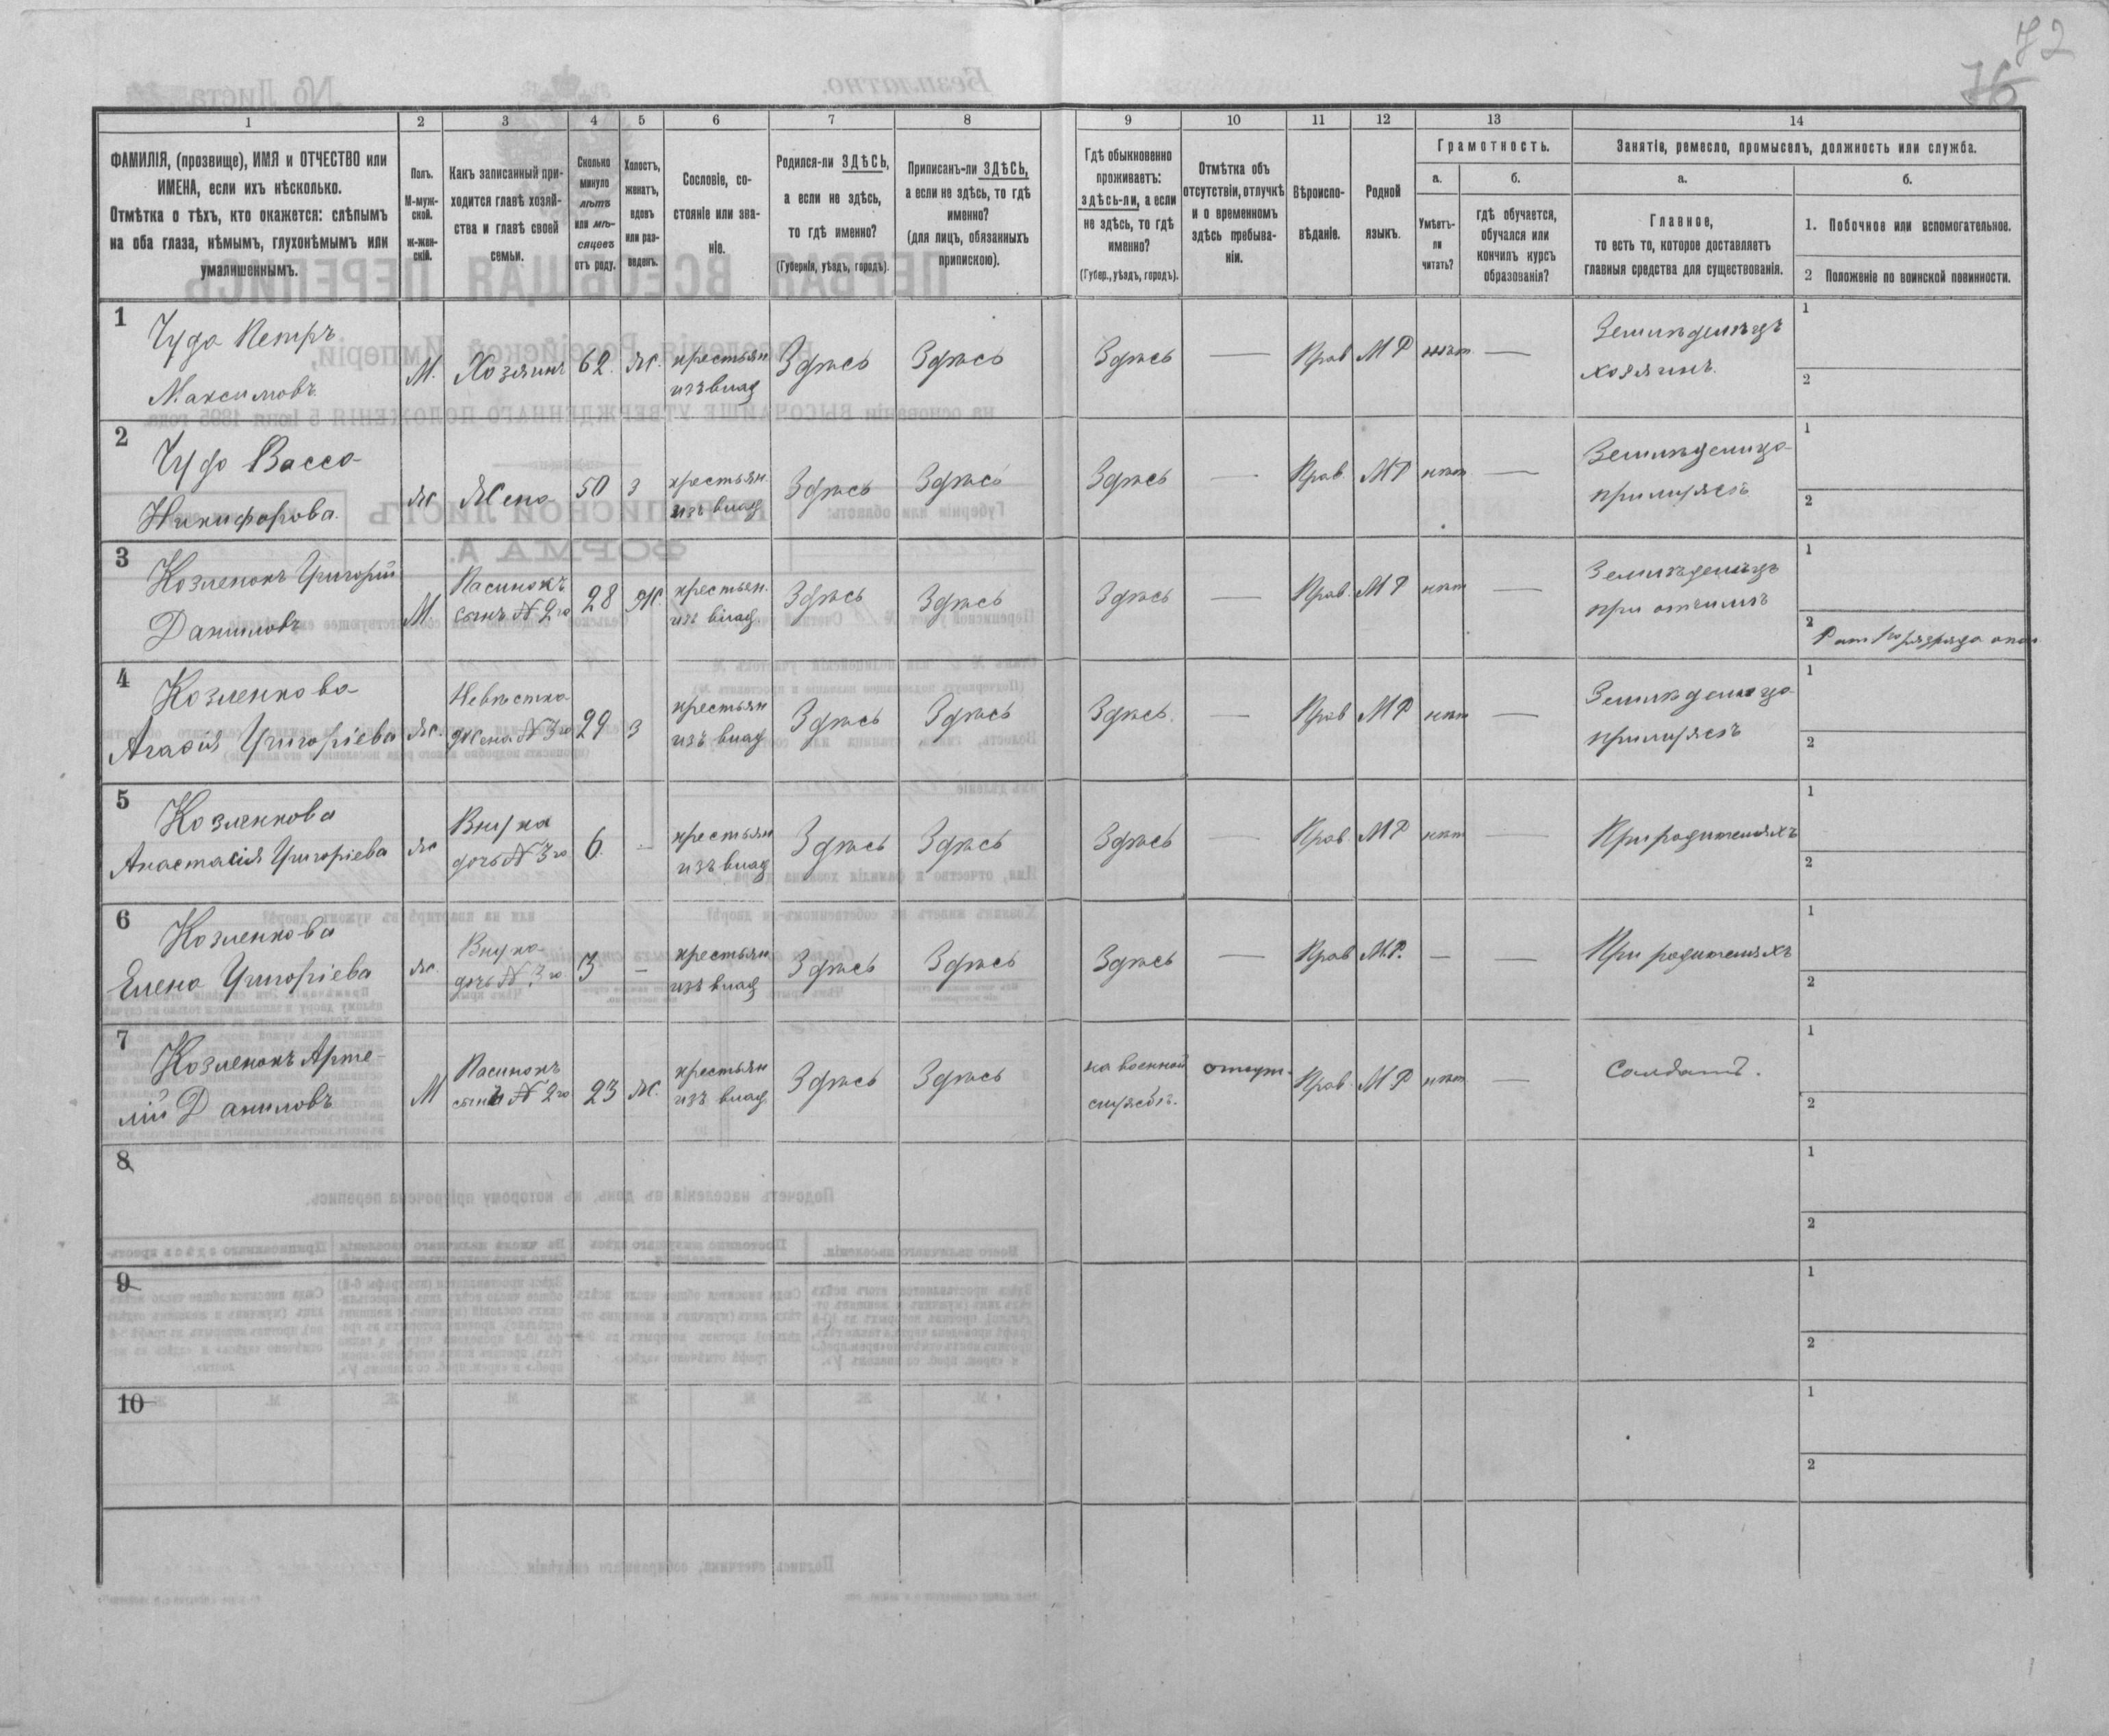 72
76
1 2 3 4 5 6 7 8 9 10 11 12 13 14
ФАМИЛІЯ, (прозвище), ИМЯ и ОТЧЕСТВО или
ИМЕНА, если ихъ нѣсколько.
Отмѣтка о тѣхъ, кто окажется: слѣпымъ
на оба глаза, нѣмымъ, глухонѣмымъ или
умалишеннымъ.
Полъ.
М-муж-
ской.
ж-жен-
скій.
Какъ записанный при-
ходится главѣ хозяй-
ства и главѣ своей
семьи.
Сколько
минуло
лѣтъ
или мѣ-
сяцевъ
отъ роду.
Холостъ,
женатъ,
вдовъ
или раз-
веденъ.
Сословіе, со-
стояніе или зва-
ніе.
Родился-ли ЗДѢСЬ,
а если не здѣсь,
то гдѣ именно?
(Губернія, уѣздъ, городъ).
Приписанъ-ли ЗДѢСЬ,
а если не здѣсь, то гдѣ
именно?
(для лицъ, обязанныхъ
припискою).
Гдѣ обыкновенно
проживаетъ:
здѣсь-ли, а если
не здѣсь, то гдѣ
именно?
(Губер., уѣздъ, городъ).
Отмѣтка объ
отсутствіи, отлучкѣ
и о временномъ
здѣсь пребыва-
ніи.
Вѣроиспо-
вѣданіе.
Родной
языкъ.
Грамотность.
а.
Умѣетъ-
ли
читать?
б.
гдѣ обучается,
обучался или
кончилъ курсъ
образованія?
Занятіе, ремесло, промыселъ, должность или служба.
а.
Главное,
то есть то, которое доставляетъ
главныя средства для существованія.
б.
1. Побочное или вспомогательное.
2 Положеніе по воинской повинности.
1
Чудо Петръ
Максимовъ
М. Хозяинъ 62. Ж. крестьян
изъ влад
Здѣсь Здѣсь Здѣсь — Прав МР нѣт —
Земледѣлецъ
хозяинъ.
1
2
2
Чудо Васса
Никифорова.
Ж Жена 50 З крестьян.
изъ влад
Здѣсь Здѣсь Здѣсь — Прав. МР нѣт —
Земледѣлица
при мужѣ
1
2
3
Козленокъ Григорій
Даниловъ
М. Пасинокъ
сынъ № 2го
28 Ж. крестьян.
изъ влад
Здѣсь Здѣсь Здѣсь — Прав. МР нѣт —
Земледѣлецъ
при отчимѣ
1
2
Рат 1го разряда
4
Козленкова
Агафія Григоріева
Ж. Невѣстка
жена № 3го
29 З крестьян
изъ влад
Здѣсь Здѣсь Здѣсь. — Прав МР нѣт —
Земледѣлица
при мужѣ
1
2
5
Козленкова
Анастасія Григоріева
Ж Внука
дочь № 3го
6. - крестьян
изъ влад
Здѣсь Здѣсь Здѣсь — Прав. МР нѣт —
При родителяхъ
1
2
6
Козленкова
Елена Григоріева
Ж. Внука
дочь № 3го
3 — крестьян
изъ влад
Здѣсь Здѣсь Здѣсь — Прав М.Р. — —
При родителяхъ
1
2
7
Козленокъ Арте-
мій Даниловъ
М Пасинокъ
сынъ № 2го
23 Ж. крестьян
изъ влад.
Здѣсь Здѣсь на военной
службѣ.
отсут. Прав. МР нѣт —
Солдатъ.
1
2
8
1
2
9
1
2
10
1
2